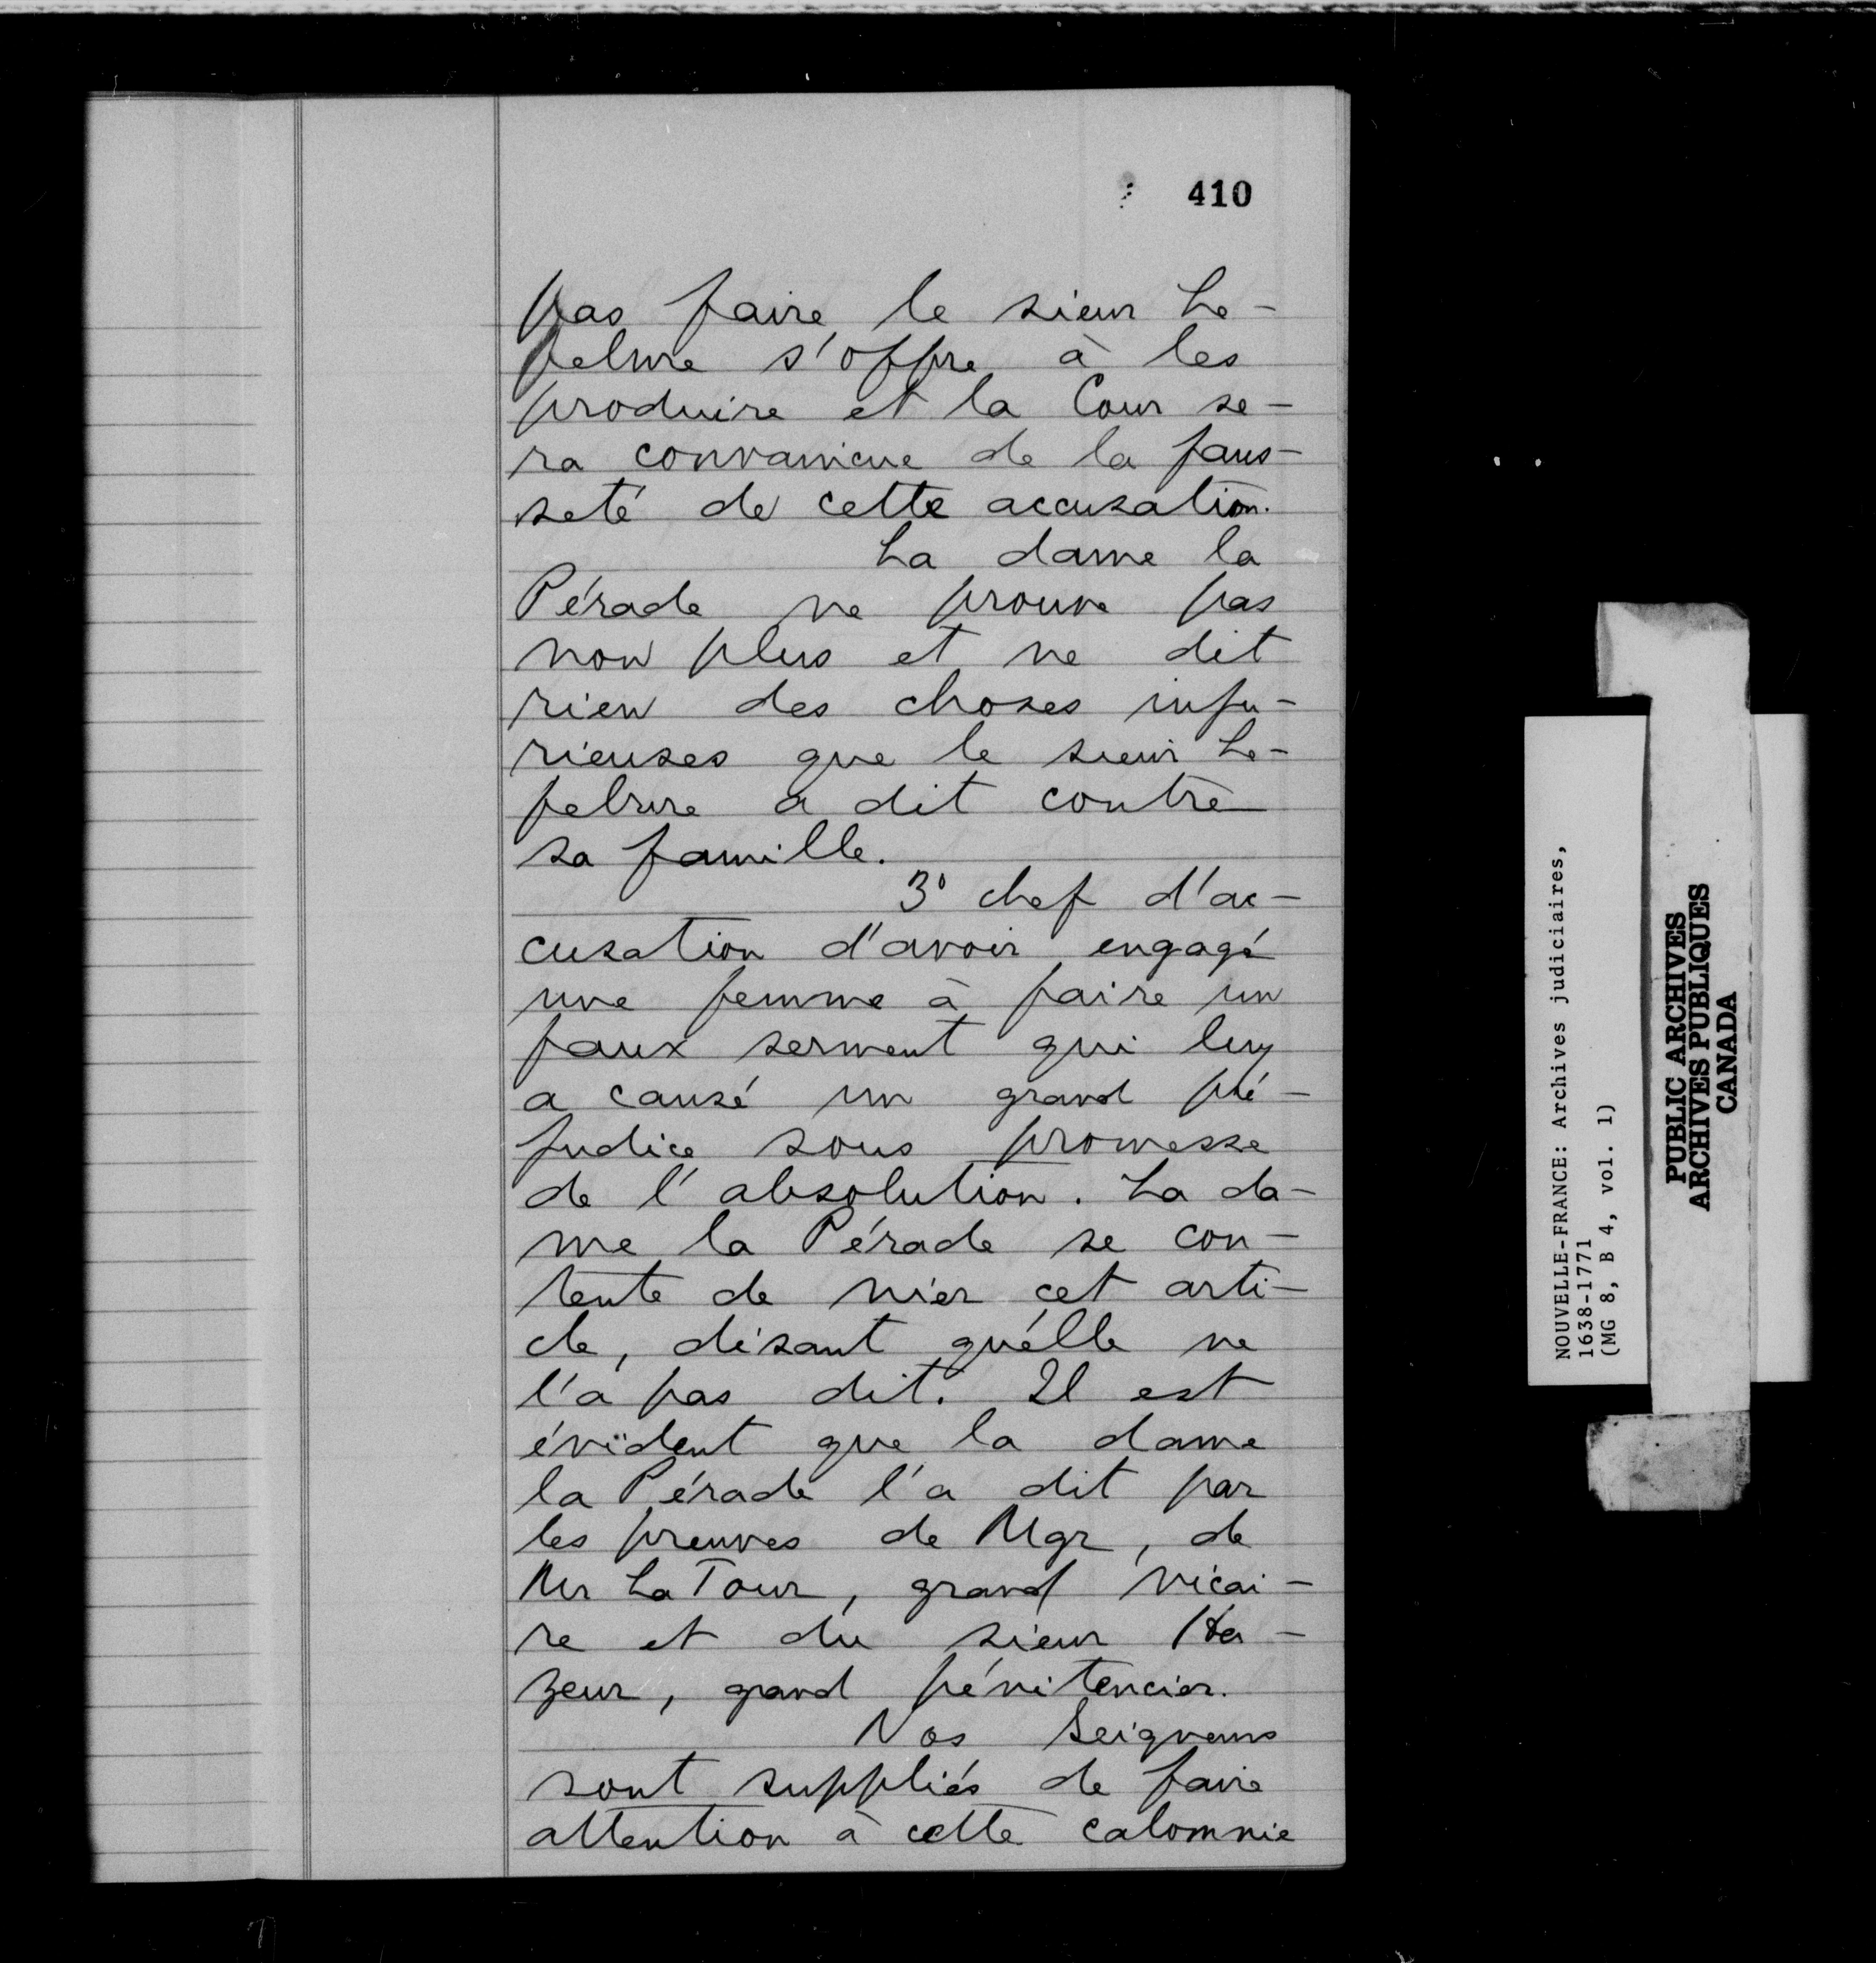 410
pas faire le sieur Le-
febvre s'offre à les
produire et la Cour se-
ra convaincue de la faus-
seté de cette accusation.
La dame la
Pérade ne prouve pas
non plus et ne dit
rien des choses inju-
rieuses que le sieur Le-
febvre a dit contre
sa famille.
3° chef d'ac-
cusation d'avoir engagé
une femme à faire un
faux serment qui luy
a causé un grand pré-
judice sous promesse
de l'absolution. La da-
me la Pérade se con-
tente de nier cet arti-
cle, disant qu'elle ne
l'a pas dit. Il est
évident que la dame
la Pérade l'a dit par
les preuves de Mgr, de
Mr La Tour, grand vicai-
re et du sieur Ha-
zeur, grand pénitencier.
Nos Seigneurs
sont suppliés de faire
attention à cette calomnie
NOUVELLE-FRANCE: Archives judiciaires,
1638-1771
(MG 8, B 4, vol. 1)
PUBLIC ARCHIVES
ARCHIVES PUBLIQUES
CANADA